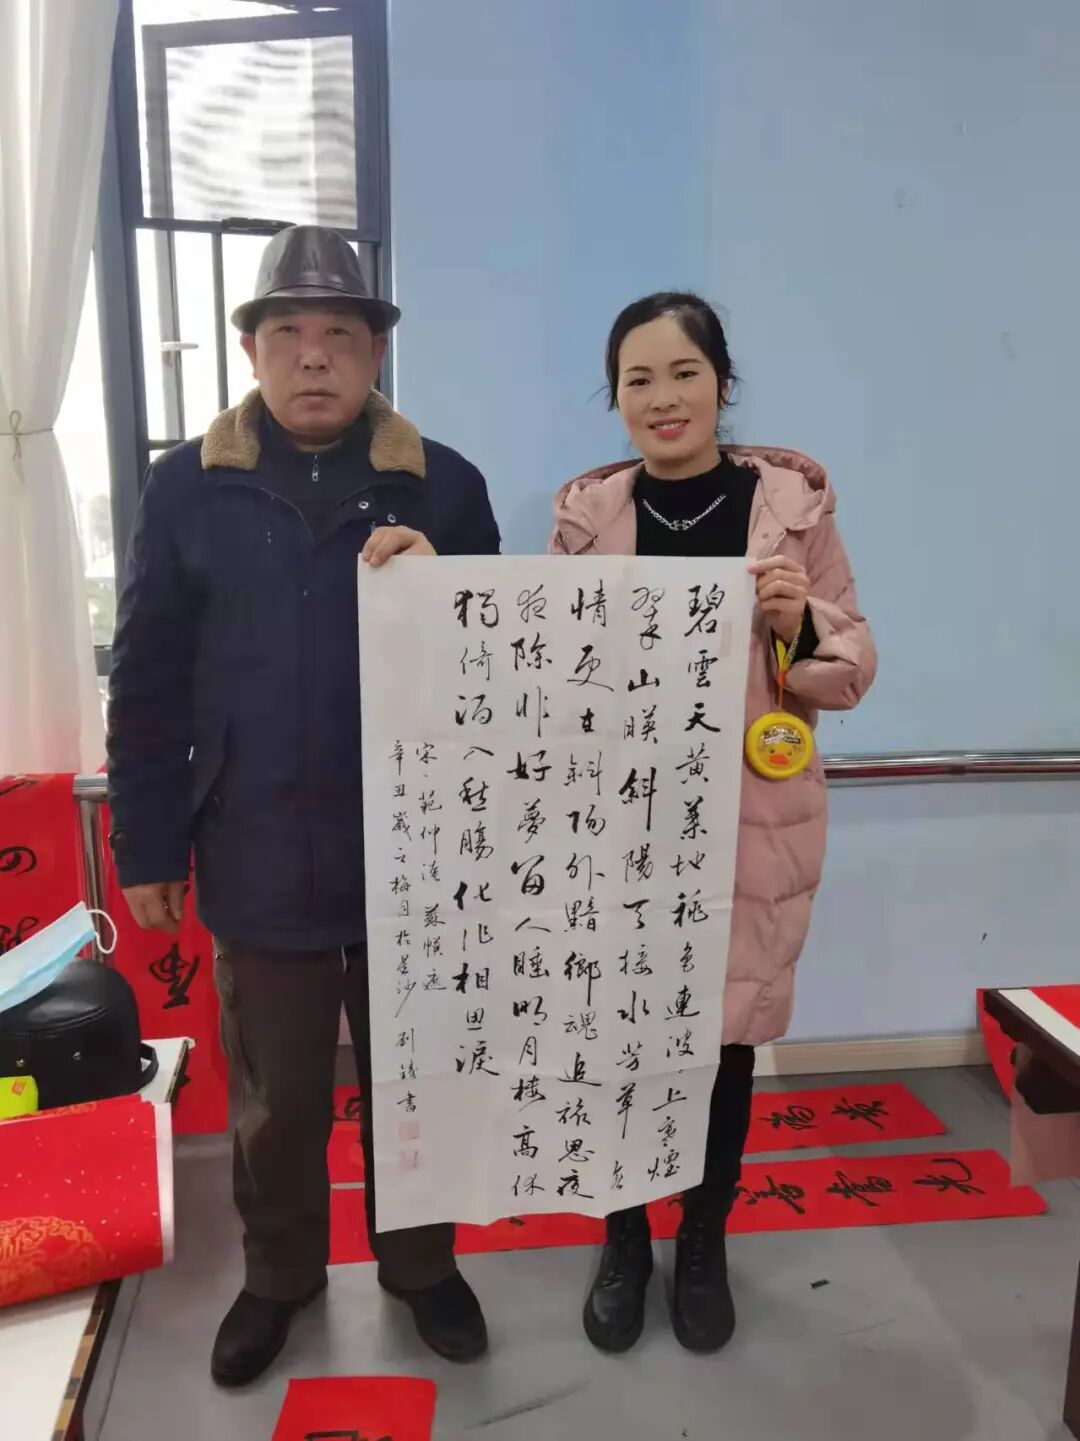 碧雲天黃葉地秋色連波、上寒煙
翠山暎斜陽天接水芳草無
情更在斜陽外黯鄉魂追旅思夜
夜除非好夢留人睡明月樓高休
獨倚酒入愁腸化作相思淚
宋、範仲淹 蘇幙遮
辛丑歲之梅月於星沙 劉 書